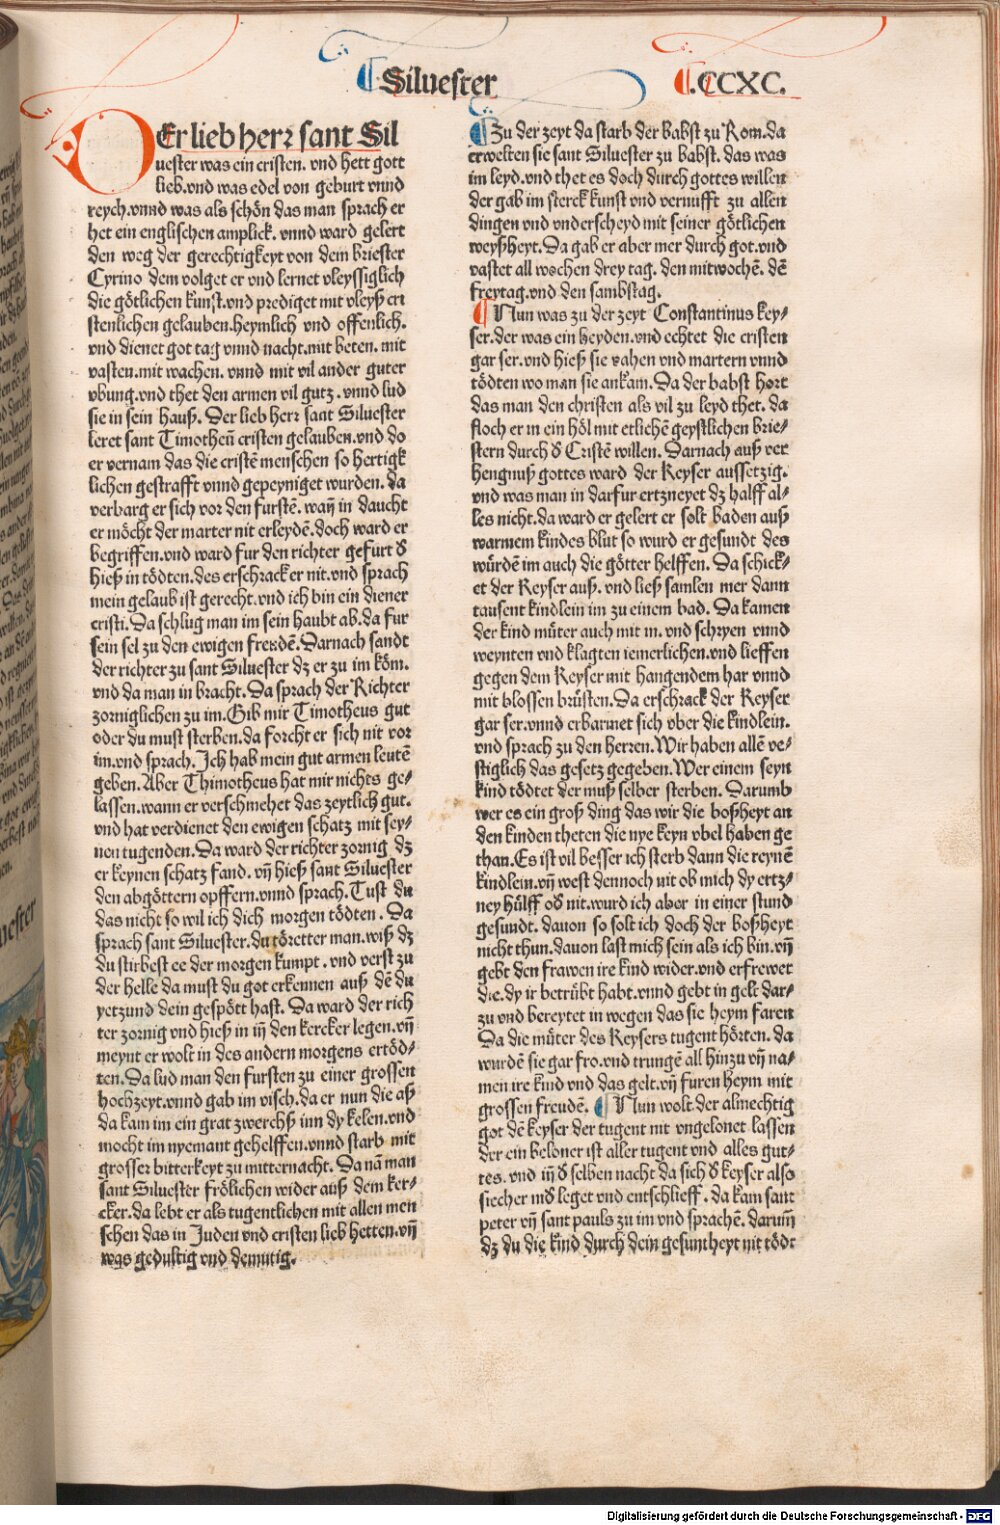 ¶ Siluester
¶ .CCXC.
DEr lieb herr sant Sil
uester was ein cristen. vnd hett gott
lieb.vnd was edel von geburt vnnd
reych.vnnd was als schön das man sprach er
het ein englischen amplick. vnnd ward gelert
den weg der gerechtigkeyt von dem briester
Cyrino dem volget er vnd lernet vleyssiglich
die götlichen kunst.vnd prediget mit vleyß cri
stenlichen gelauben.heymlich vnd offenlich.
vnd dienet got tag vnnd nacht.mit beten. mit
vasten.mit wachen. vnnd mit vil ander guter
vbung.vnd thet den armen vil gutz. vnnd lud
sie in sein hauß. Der lieb herr sant Siluester
leret sant Timotheū cristen gelauben.vnd do
er vernam das die cristē menschen so hertigk
lichen gestrafft vnnd gepeyniget wurden. da
verbarg er sich vor den furstē. wañ in daucht
er möcht der marter nit erleydē.doch ward er
begriffen.vnd ward fur den richter gefurt ð
hieß in tödten.des erschrack er nit.vnd sprach
mein gelaub ist gerecht.vnd ich bin ein diener
cristi.Da schlug man im sein haubt ab.da fur
sein sel zu den ewigen freudē.Darnach sandt
der richter zu sant Siluester dz er zu im köm.
vnd da man in bracht.Da sprach der Richter
zorniglichen zu im.Gib mir Timotheus gut
oder du must sterben.da forcht er sich nit vor
im.vnd sprach.Ich hab mein gut armen leutē
geben.Aber Thimotheus hat mir nichts ge⸗
lassen.wann er verschmehet das zeytlich gut.
vnd hat verdienet den ewigen schatz mit sey⸗
nen tugenden.Da ward der richter zornig dz
er keynen schatz fand. vñ hieß sant Siluester
den abgöttern opffern.vnnd sprach.Tust du
das nicht so wil ich dich morgen tödten. Da
sprach sant Siluester.du töretter man.wiß dz
du stirbest ee der morgen kumpt. vnd verst zu
der helle da must du got erkennen auß dē du
yetzund dein gespött hast. Da ward der rich
ter zornig vnd hieß in iñ den kercker legen.vñ
meynt er wolt in des andern morgens ertöd⸗
ten.Da lud man den fursten zu einer grossen
hochzeyt.vnnd gab im visch.da er nun die aß
da kam im ein grat zwerchß inn dy kelen.vnd
mocht im nyemant gehelffen.vnnd starb mit
grosser bitterkeyt zu mitternacht. Da nā man
sant Siluester frölichen wider auß dem ker⸗
cker.da lebt er als tugentlichen mit allen men
schen das in Juden vnd cristen lieb hetten.vñ
was gedultig vnd demutig.
¶ Zu der zeyt da starb der babst zu Rom.da
erwelten sie sant Siluester zu babst. das was
im leyd.vnd thet es doch durch gottes willen
der gab im sterck kunst vnd vernufft zu allen
dingen vnd vnderscheyd mit seiner götlichen
weyßheyt.Da gab er aber mer durch got.vnd
vastet all wochen drey tag. den mitwochē. dē
freytag.vnd den sambstag.
¶ Nun was zu der zeyt Constantinus key⸗
ser.der was ein heyden.vnd echtet die cristen
gar ser.vnd hieß sie vahen vnd martern vnnd
tödten wo man sie ankam. Da der babst hort
das man den christen als vil zu leyd thet. da
floch er in ein höl mit etlichē geystlichen brie⸗
stern durch ð Cristē willen. Darnach auß ver
hengnuß gottes ward der Keyser aussetzig.
vnd was man in darfur ertzneyet dz halff al⸗
les nicht.da ward er gelert er solt baden auß
warmem kindes blut so wurd er gesundt des
würdē im auch die götter helffen. Da schick⸗
et der Keyser auß. vnd ließ samlen mer dann
tausent kindlein im zu einem bad. Da kamen
der kind müter auch mit in. vnd schryen vnnd
weynten vnd klagten iemerlichen.vnd lieffen
gegen dem Keyser mit hangendem har vnnd
mit blossen brüsten.Da erschrack der Keyser
gar ser.vnnd erbarmet sich vber die kindlein.
vnd sprach zu den herren.Wir haben allē ve⸗
stiglich das gesetz gegeben.Wer einem seyn
kind tödtet der muß selber sterben. Darumb
wer es ein groß ding das wir die boßheyt an
den kinden theten die nye keyn vbel haben ge
than.Es ist vil besser ich sterb dann die reynē
kindlein.vñ west dennoch nit ob mich dy ertz⸗
ney hülff oð nit.wurd ich aber in einer stund
gesundt. dauon so solt ich doch der boßheyt
nicht thun.dauon last mich sein als ich bin.vñ
gebt den frawen ire kind wider.vnd erfrewet
die.dy ir betrübt habt.vnnd gebt in gelt dar⸗
zu vnd bereytet in wegen das sie heym faren
Da die müter des Keysers tugent hörten. da
wurdē sie gar fro.vnd trungē all hinzu vñ na⸗
men ire kind vnd das gelt.vñ furen heym mit
grossen freudē. ¶ Nun wolt der almechtig
got dē keyser der tugent nit vngelonet lassen
der ein beloner ist aller tugent vnd alles gut⸗
tes. vnd iñ ð selben nacht da sich ð keyser also
siecher nið leget vnd entschlieff. da kam sant
peter vñ sant pauls zu im vnd sprachē. darum̃
dz du die kind durch dein gesuntheyt nit tödt
Digitalisierung gefördert durch die Deutsche Forschungsgemeinschaft - DFG